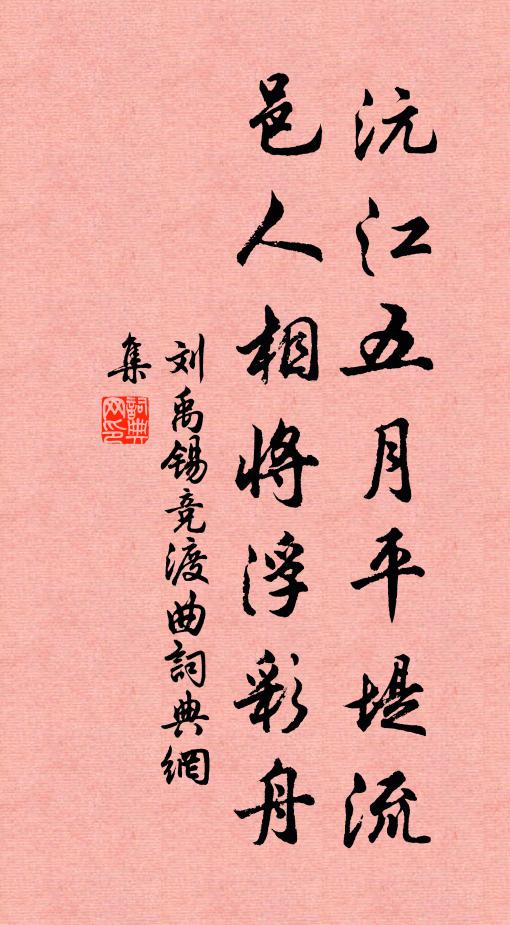 沅江五月平堤流
邑人相将浮彩舟
刘禹锡竞渡曲詞典網
集
詞典网印